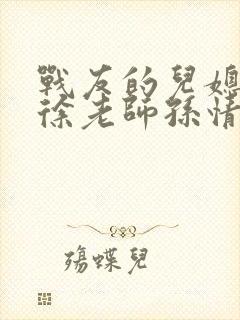 戰友的兒媳
徐老師孫情
殤蝶兒